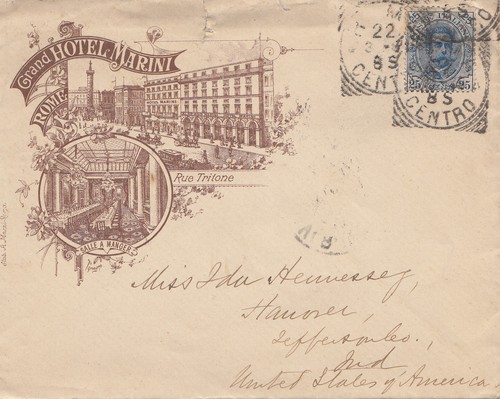 Grand HOTEL MARINI
ROME
HOTEL MARINI
Rue Tritone
SALLE A MANGER
22
85
CENTRO
85
CENTRO
25
Miss Ida Hennessey,
Hanover,
Jefferson Co.,
Ind,
United States of America